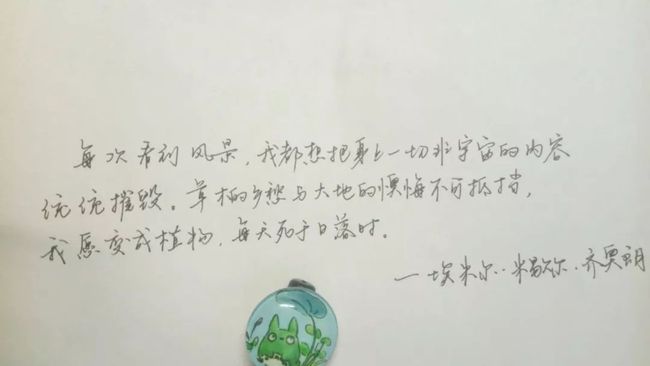 每次看到风景，我都想把身上一切非宇宙的内容
统统摧毁。草木的乡愁与大地的懊悔不可抵挡，
我愿变成植物，每天死于日落时。
—埃米尔·米歇尔·齐奥朗